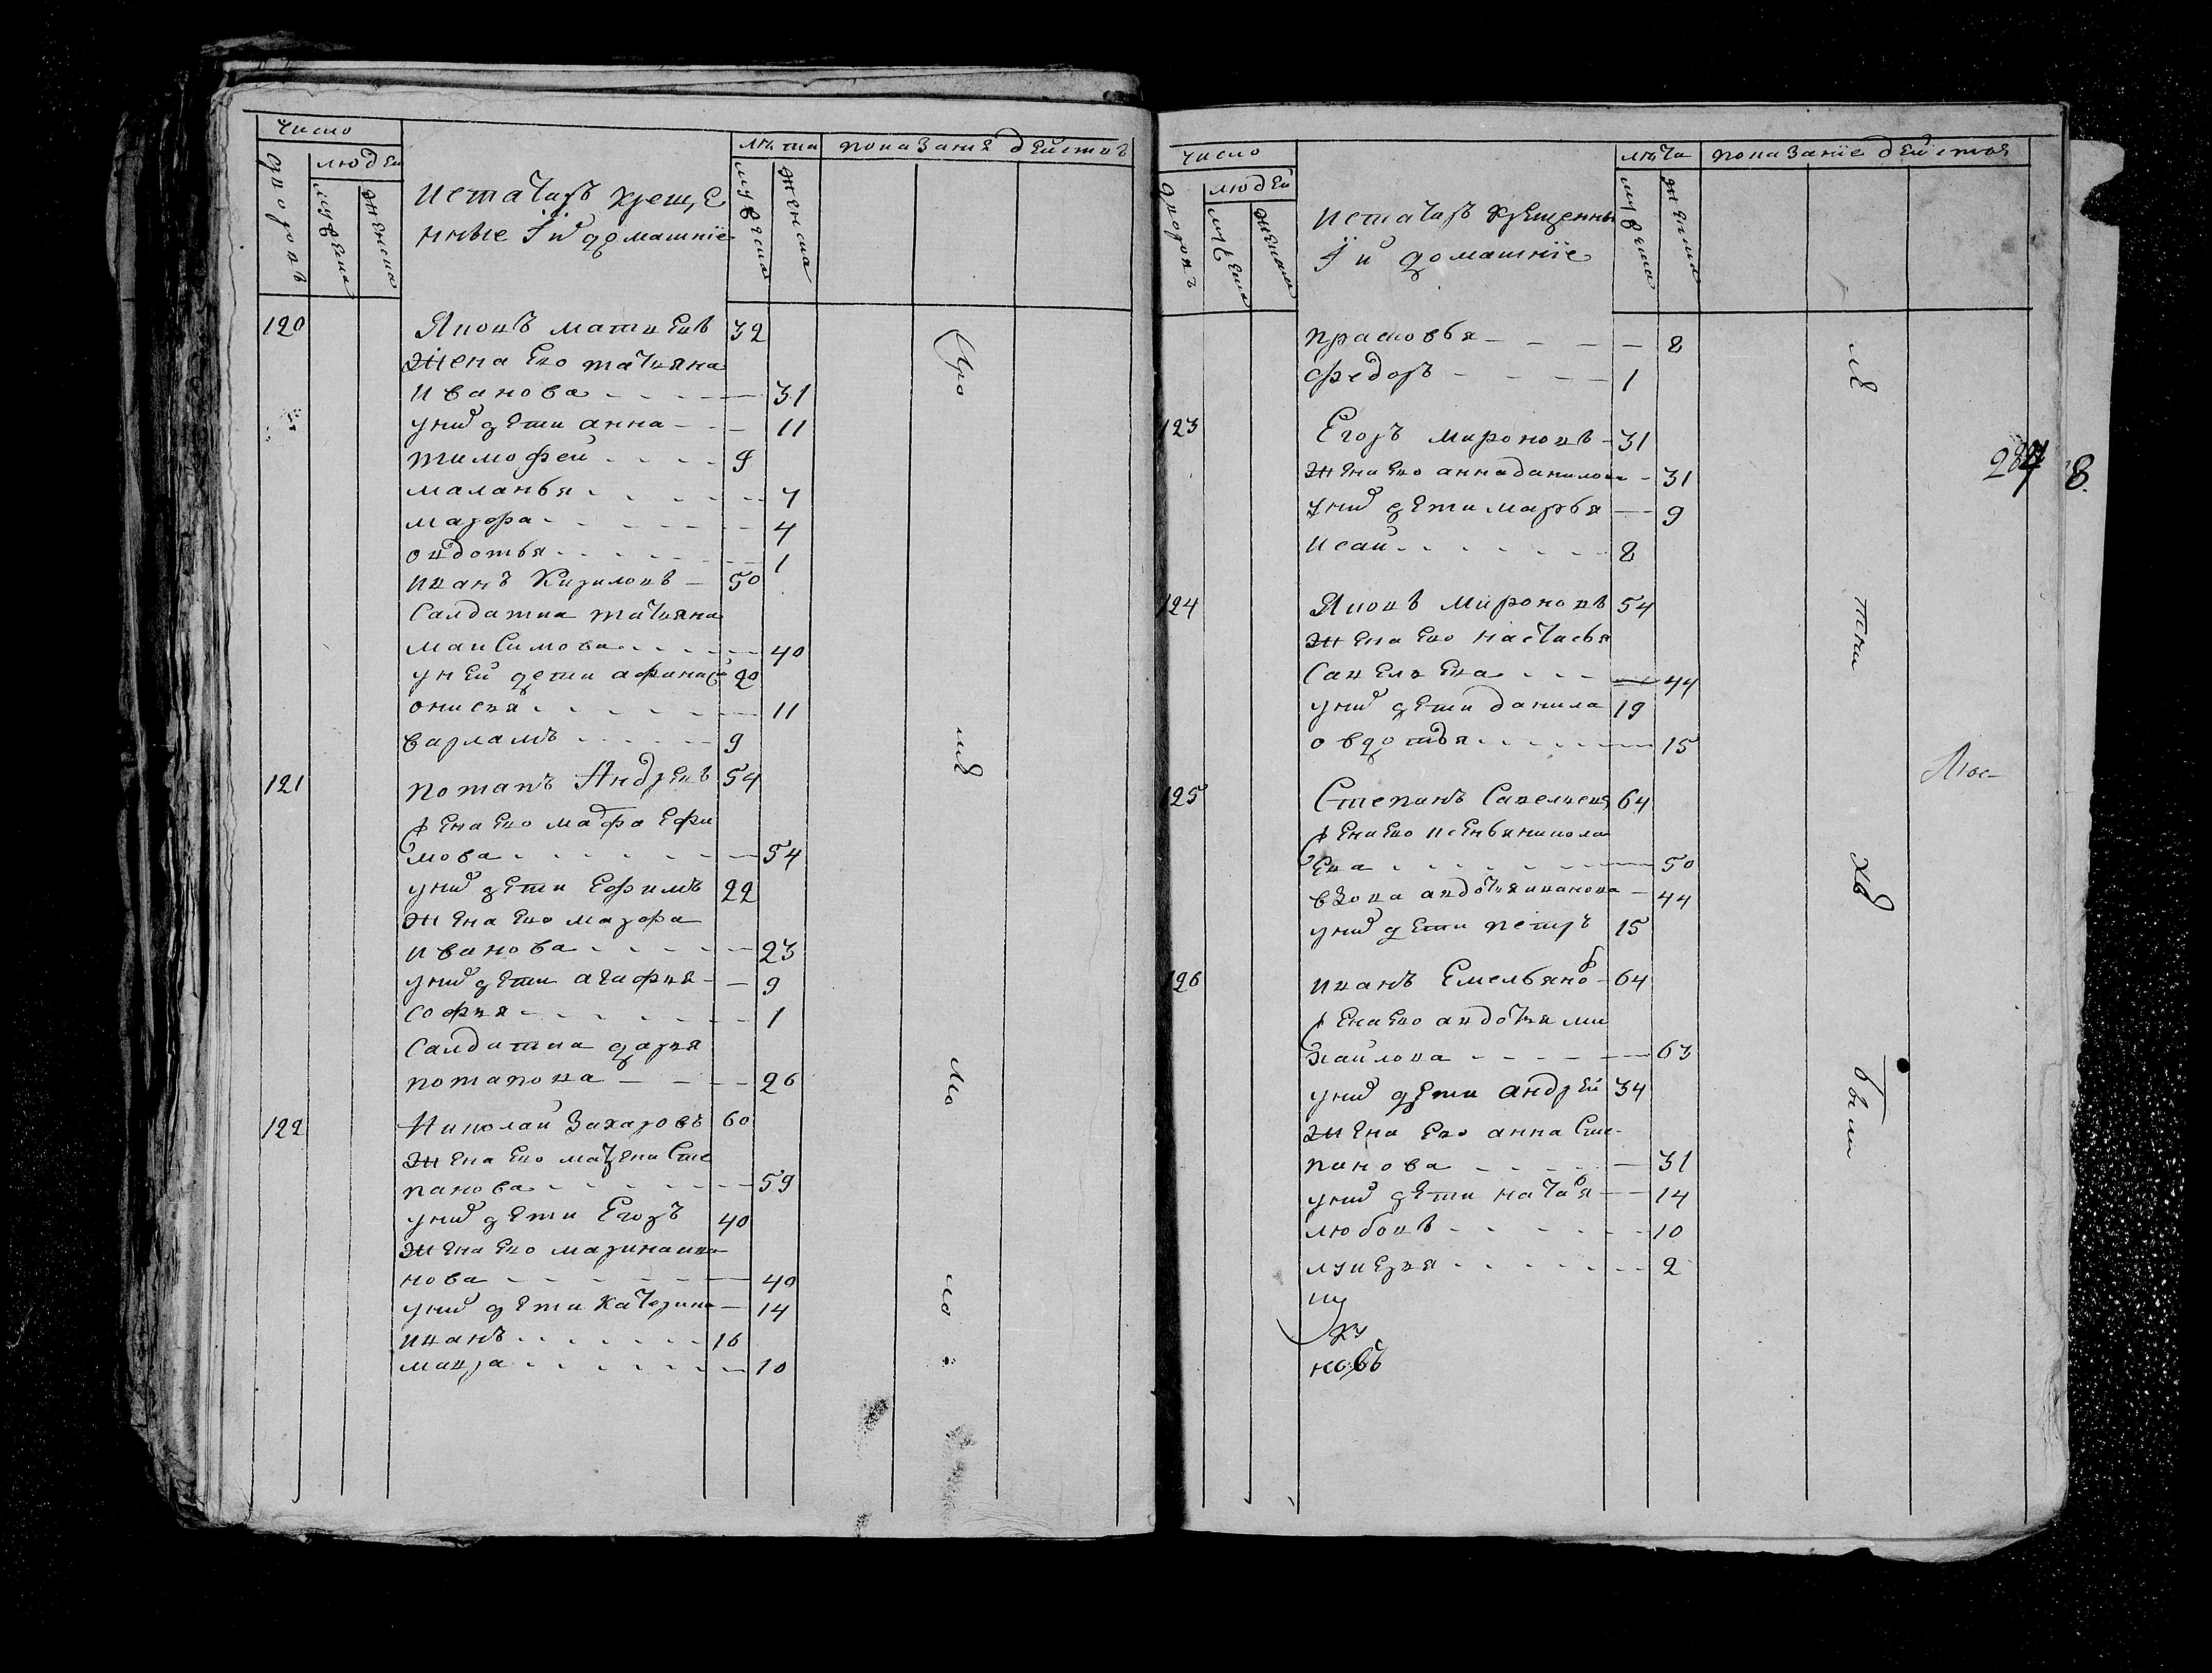 число
людей
дворовъ
мужеска
женска
истатаръ креще
нные Ї ихъ домашнїе
лѣта
мужеска
женска
показания действъ
120 Яковъ матвевъ 32
жена ево татьяна
иванова 31
уних дети анна 11
тимофеи 9
маланья 7
марфа 4
овдотья 1
иванъ Кириловъ 50
Салдатка татьяна
максимова 40
уней дети афанасе 20
онисья 11
варламъ 9
121 потапъ Андревъ 54
жена ево марфа ефи
мова 54
уних дети Ефимъ 22
жена ево марфа
иванова 23
уних дети агафья 9
софья 1
Салдатка дарья
потапова 26
122 Николаи Захаровъ 60
жена ево матрена Сте
панова 59
уних дети Егоръ 40
жена ево марина ива
нова 40
уних дети Катерина 14
иванъ 16
мавра 10
число
людей
дворовъ
мужеска
женска
истатаръ крещенны
Ї их домашнїе
лѣта
мужеска
женска
показанїе действя
прасковья 8
федоръ 1
123 Егоръ мироновъ 31
жена ево анна данилова 31
уних дети марья 9
исаи 8
124 Яковъ мироновъ 54
жена ево настасья
Савельева 44
уних дети данила 19
овдотья 15
125 Степанъ Савельевъ 64
жена ево ксенья никола
ева 50
вдова авдотья иванова 44
уних дети петръ 15
126 иванъ Емельяновъ 64
жена ево авдотья ми
хаилова 63
уних дети андрей 34
жена ево анна Сте
панова 31
уних дети наталя 14
любовь 10
лукерья 2
новъ
были
8.